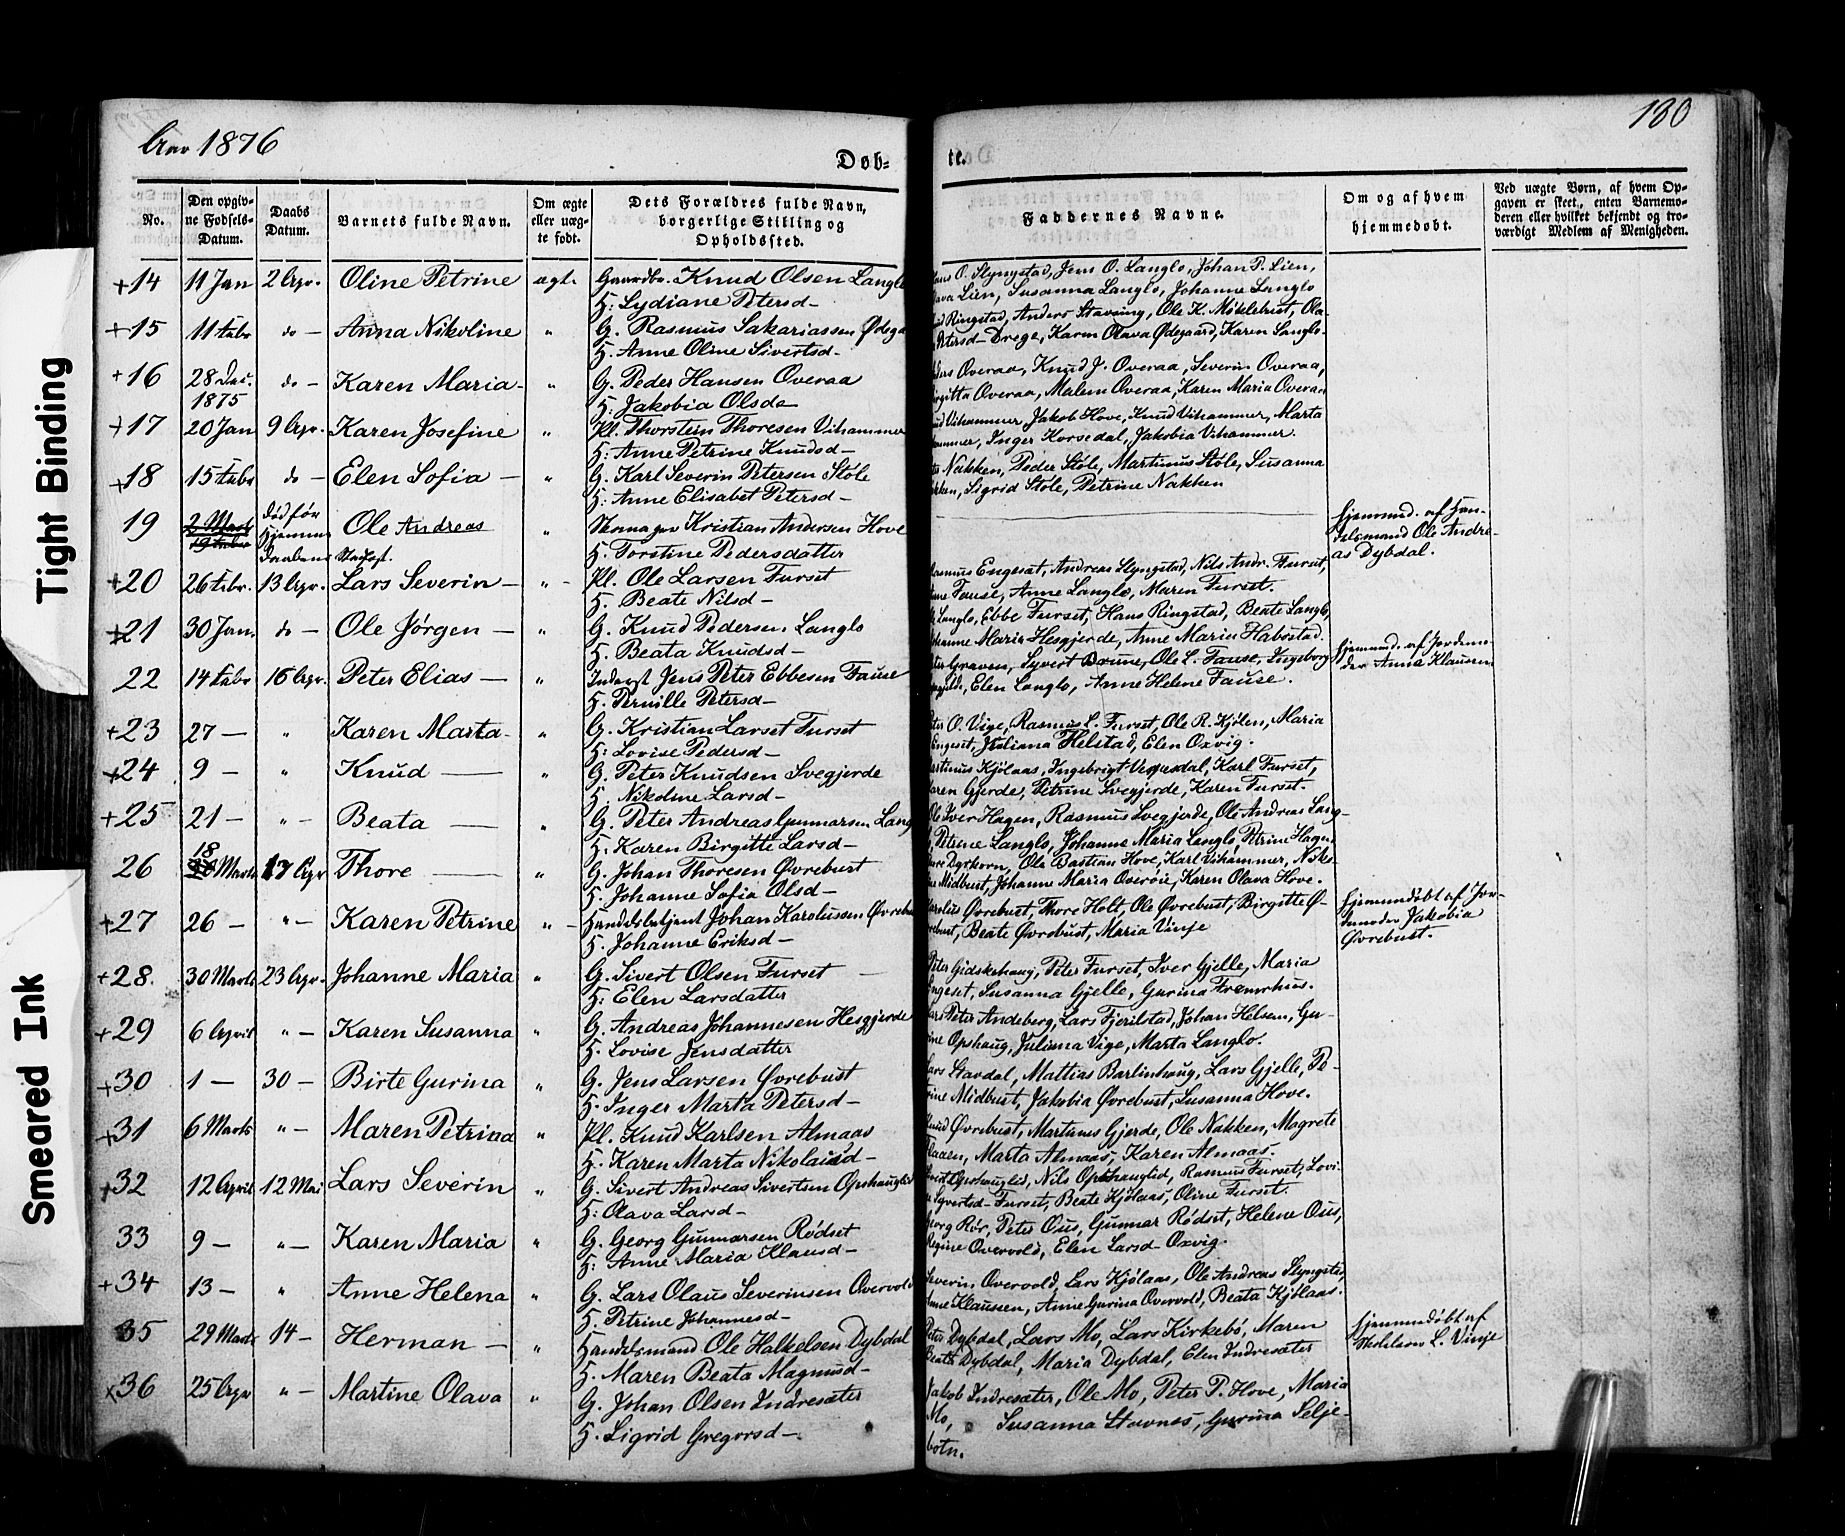 Aar 1876
Døb=
te.
130
Tight Binding
Smeared Ink
No.
Den opgiv-
ne Fødsels-
Datum.
Daabs
Datum.
Barnets fulde Navn.
Om ægte
eller uæg-
te født.
Dets Forældres fulde Navn,
borgerlige Stilling og
Opholdssted.
Faddernes Navne.
Om og af hvem
hjemmedøbt.
Ved uægte Børn, af hvem Op-
gaven er skeet, enten Barnemo-
deren eller hvilket bekjendt og tro-
værdigt Medlem af Menigheden.
+14 11 Jan 2 Apr. Oline Petrine ægt. Gaardbr. Knud Olsen Langlo
H. Lydiane Petersd-
O. Slyngstad, Jens O. Langlo, Johan P. Lien,
Lien, Susanna Langlo, Johanne Langlo
+15 11 Febr do - Anna Nikoline " G. Rasmus Sakariassen
H. Anne Oline Sivertsd-
Ringstad, Anders Stavning, Ole K. Møkelebust, Ola
Petersd- Drege, Karen Olava Ødegaard, Karen Langlo-
+16 28 Dec. 1875 do - Karen Maria - " G. Peder Hansen Overaa
H. Jakobia Olsd-
Overaa, Knud J. Overaa, Severin Overaa,
Overaa, Malene Overaa, Karen Maria Overaa
+17 20 Jan 9 Apr. Karen Josefine " Pl. Thorstein Thoresen Vihammer
H: Anne Petrine Knudsd-
Vihammer Jakob Hove, Knud Vihammer, Marta
Inger Korsedal, Jakobia Vihammer.
+18 15 Febr do - Elen Sofia - " G. Karl Severin Petersen Støle
H: Anne Elisabet Petersd-
Nakken, Peder Støle, Martinus Støle, Susanna
Sigrid Støle, Petrine Nakken
19 2 Marts
19 Febr
død før
Hjemme
daabens
Stadf.
Ole Andreas " Skomager Kristian Andersen Hove
H. Torstine Pedersdatter
hjemmed. af Han-
delsmand Ole Andre-
as Dybdal.
+20 26 Febr. 13 Apr. Lars Severin - " - Pl. Ole Larsen Furset
H. Beate Nilsd -
Rasmus Engeset, Andreas Slyngstad, Nils Andr. Furset,
Fause, Anne Langlo, Maren Furset.
+21 30 Jan. do - Ole Jørgen - " G. Knud Pedersen Langlo
H. Beata Knudsd -
Langlo, Ebbe Furset, Hans Ringstad, Beate Langlo,
Johanne Marie Hesgjerde, Anne Maria Habostad.
22 14 Febr 16 Apr. Peter Elias - " Inderst Jens Peter Ebbesen Fause
H. Pernille Petersd-
Peter Graven, Syvert Brune, Ole L. Fause, Ingeborg
Elen Langlo, Anne Helene Fause.
hjemmed. af Jordemo-
der Anna Klausen
+23 27 - " Karen Marta - " G. Kristian Larset Furset
H: Lovise Pedersd -
Peter O. Vige, Rasmus L. Furset, Ole R. Kjølen, Maria
Engeset, Juliana Helstad, Elen Oxvig.
+24 9 - " Knud - " G. Peter Knudsen Svegjerde
H. Nikoline Larsd-
Martinus Kjølaas, Ingebrigt Karl Furset,
Karen Gjerde, Petrine Svegjerde, Karen Furset.
+25 21 - " - Beata - " G. Peter Andreas Gunnarsen Lang
H: Karen Birgitte Larsd-
Ole Iver Hagen, Rasmus Svegjerde, Ole Andreas Lang-
Petrine Langlo, Johanne Maria Langlo, Petrine Hagen
26 18 Marts 17 Apr Thore - " G. Johan Thoresen Øvrebust
H. Johanne Sofia Olsd -
Thore Dyrkorn, Ole Bastian Hove, Karl Vihammer,
Midbust, Johanne Maria Overøie, Karen Olava Hove.
+27 26 - " - Karen Petrine " - Handelsbetjent Johan Karolussen Øvrebu
H. Johanne Eriksd -
Karolus Øvrebust, Thore Holt, Ole Øvrebust, Birgitte Ø-
vrebust, Beate Øvrebust, Maria Vinje
hjemmedøbt af Jor-
demoder Jakobia
Øvrebust.
+28. 30 Marts 23 Apr. Johanne Maria " G. Sivert Olsen Furset -
H: Elen Larsdatter
Peter Gidskehaug, Peter Furset, Iver Gjelle, Maria
Engeset, Susanna Gjelle, Gurina Fremrhus.
+29 6 April " - Karen Susanna " G. Andreas Johannesen Hesgjerde
H. Lovise Jensdatter
Lars Peter Andeberg, Lars Fjerilstad, Johan Helsem, Gu-
rine Opshaug, Juliana Vige, Marta Langlo.
+30 1 - 30 - Birte Gurina " G. Jens Larsen Øvrebust
H. Inger Marta Petersd -
Lars Stavdal, Mattias Barlinhaug, Lars Gjelle, Pe-
trine Midbust, Jakobia Øvrebust, Susanna Hove.
+31 6 Marts " - Maren Petrina " Pl. Knud Karlsen Almaas
H. Karen Marta Nikolaisd -
Knud Øvrebust, Martinus Gjerde, Ole Nakken, Magrete
Flaaen, Marta Almaas, Karen Almaas.
+32 12 April 12 Mai Lars Severin " G. Sivert Andreas Sivertsen Opshauglid
H: Olava Larsd -
Sivert Opshauglid, Nils Opshauglid, Rasmus Furset, Lovi-
se Syvertsd- Furset, Beate Kjølaas, Oline Furset.
33 9 - " - Karen Maria " G. Georg Gunnarsen Rødset
H: Anne Maria Klausd -
Georg Rør, Peter Ous, Gunnar Rødset, Helene Ous,
Regine Overvold, Elen Larsd- Oxvig.
+34 13 - " Anne Helena " G. Lars Olaus Severinsen Overvold
H. Petrine Johannesd -
Severin Overvold, Lars Kjølaas, Ole Andreas Slyngstad,
Anne Klausen, Anne Gurina Overvold, Beata Kjølaas.
35 29 Marts 14 - Herman - " Handelsmand Ole Halkelsen Dybdal
H. Maren Beata Magnusd -
Peter Dybdal, Lars Mo, Lars Kirkebö, Maren
Beate Dybdal, Maria Dybdal, Elen Indresæter
hjemmedøbt af
Skolelærer L. Vinje
+36 25 Apr " - Martine Olava " G. Johan Olsen Indresæter
H. Sigrid Gregorsd -
Jakob Indresæter, Ole Mo, Peter P. Hove, Maria
Mo, Susanna Stavnes, Gurina Selje-
botn.